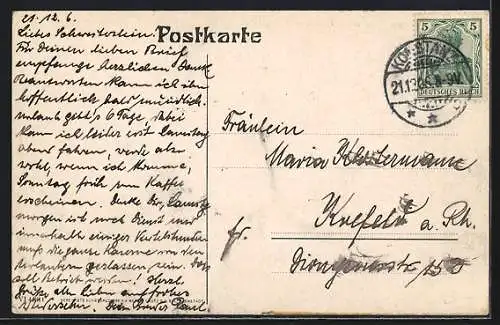 21.12.6.
Liebes Schwesterlein.
Für Deinen lieben Brief
empfange herzlichen Dank
Beantworten kann ich ihn
hoffentlich bald mündlich.
Urlaub geht's 6 Tage,
kann ich leider erst Samstag
abend fahren, werde also
wohl, wenn ich komme,
Sonntag früh zum Kaffee
erscheinen. Denke Dir, Samstag
morgen ist noch Dienst und
innerhalb einiger Viertelstunden
muß die ganze Kaserne von den
Urlaubern verlassen sein. Das
soll Betrieb werden! Herzl.
Grüße, alle Lieben auf frohes
Wiedersehn. Dein Bruder Paul.
Postkarte
5 5
DEUTSCHES REICH
KONSTANZ
21.12.06. 8-9V.
Fräulein
Maria Klostermann
Krefeld a. Rh.
fr. Dionysiusstr. 15